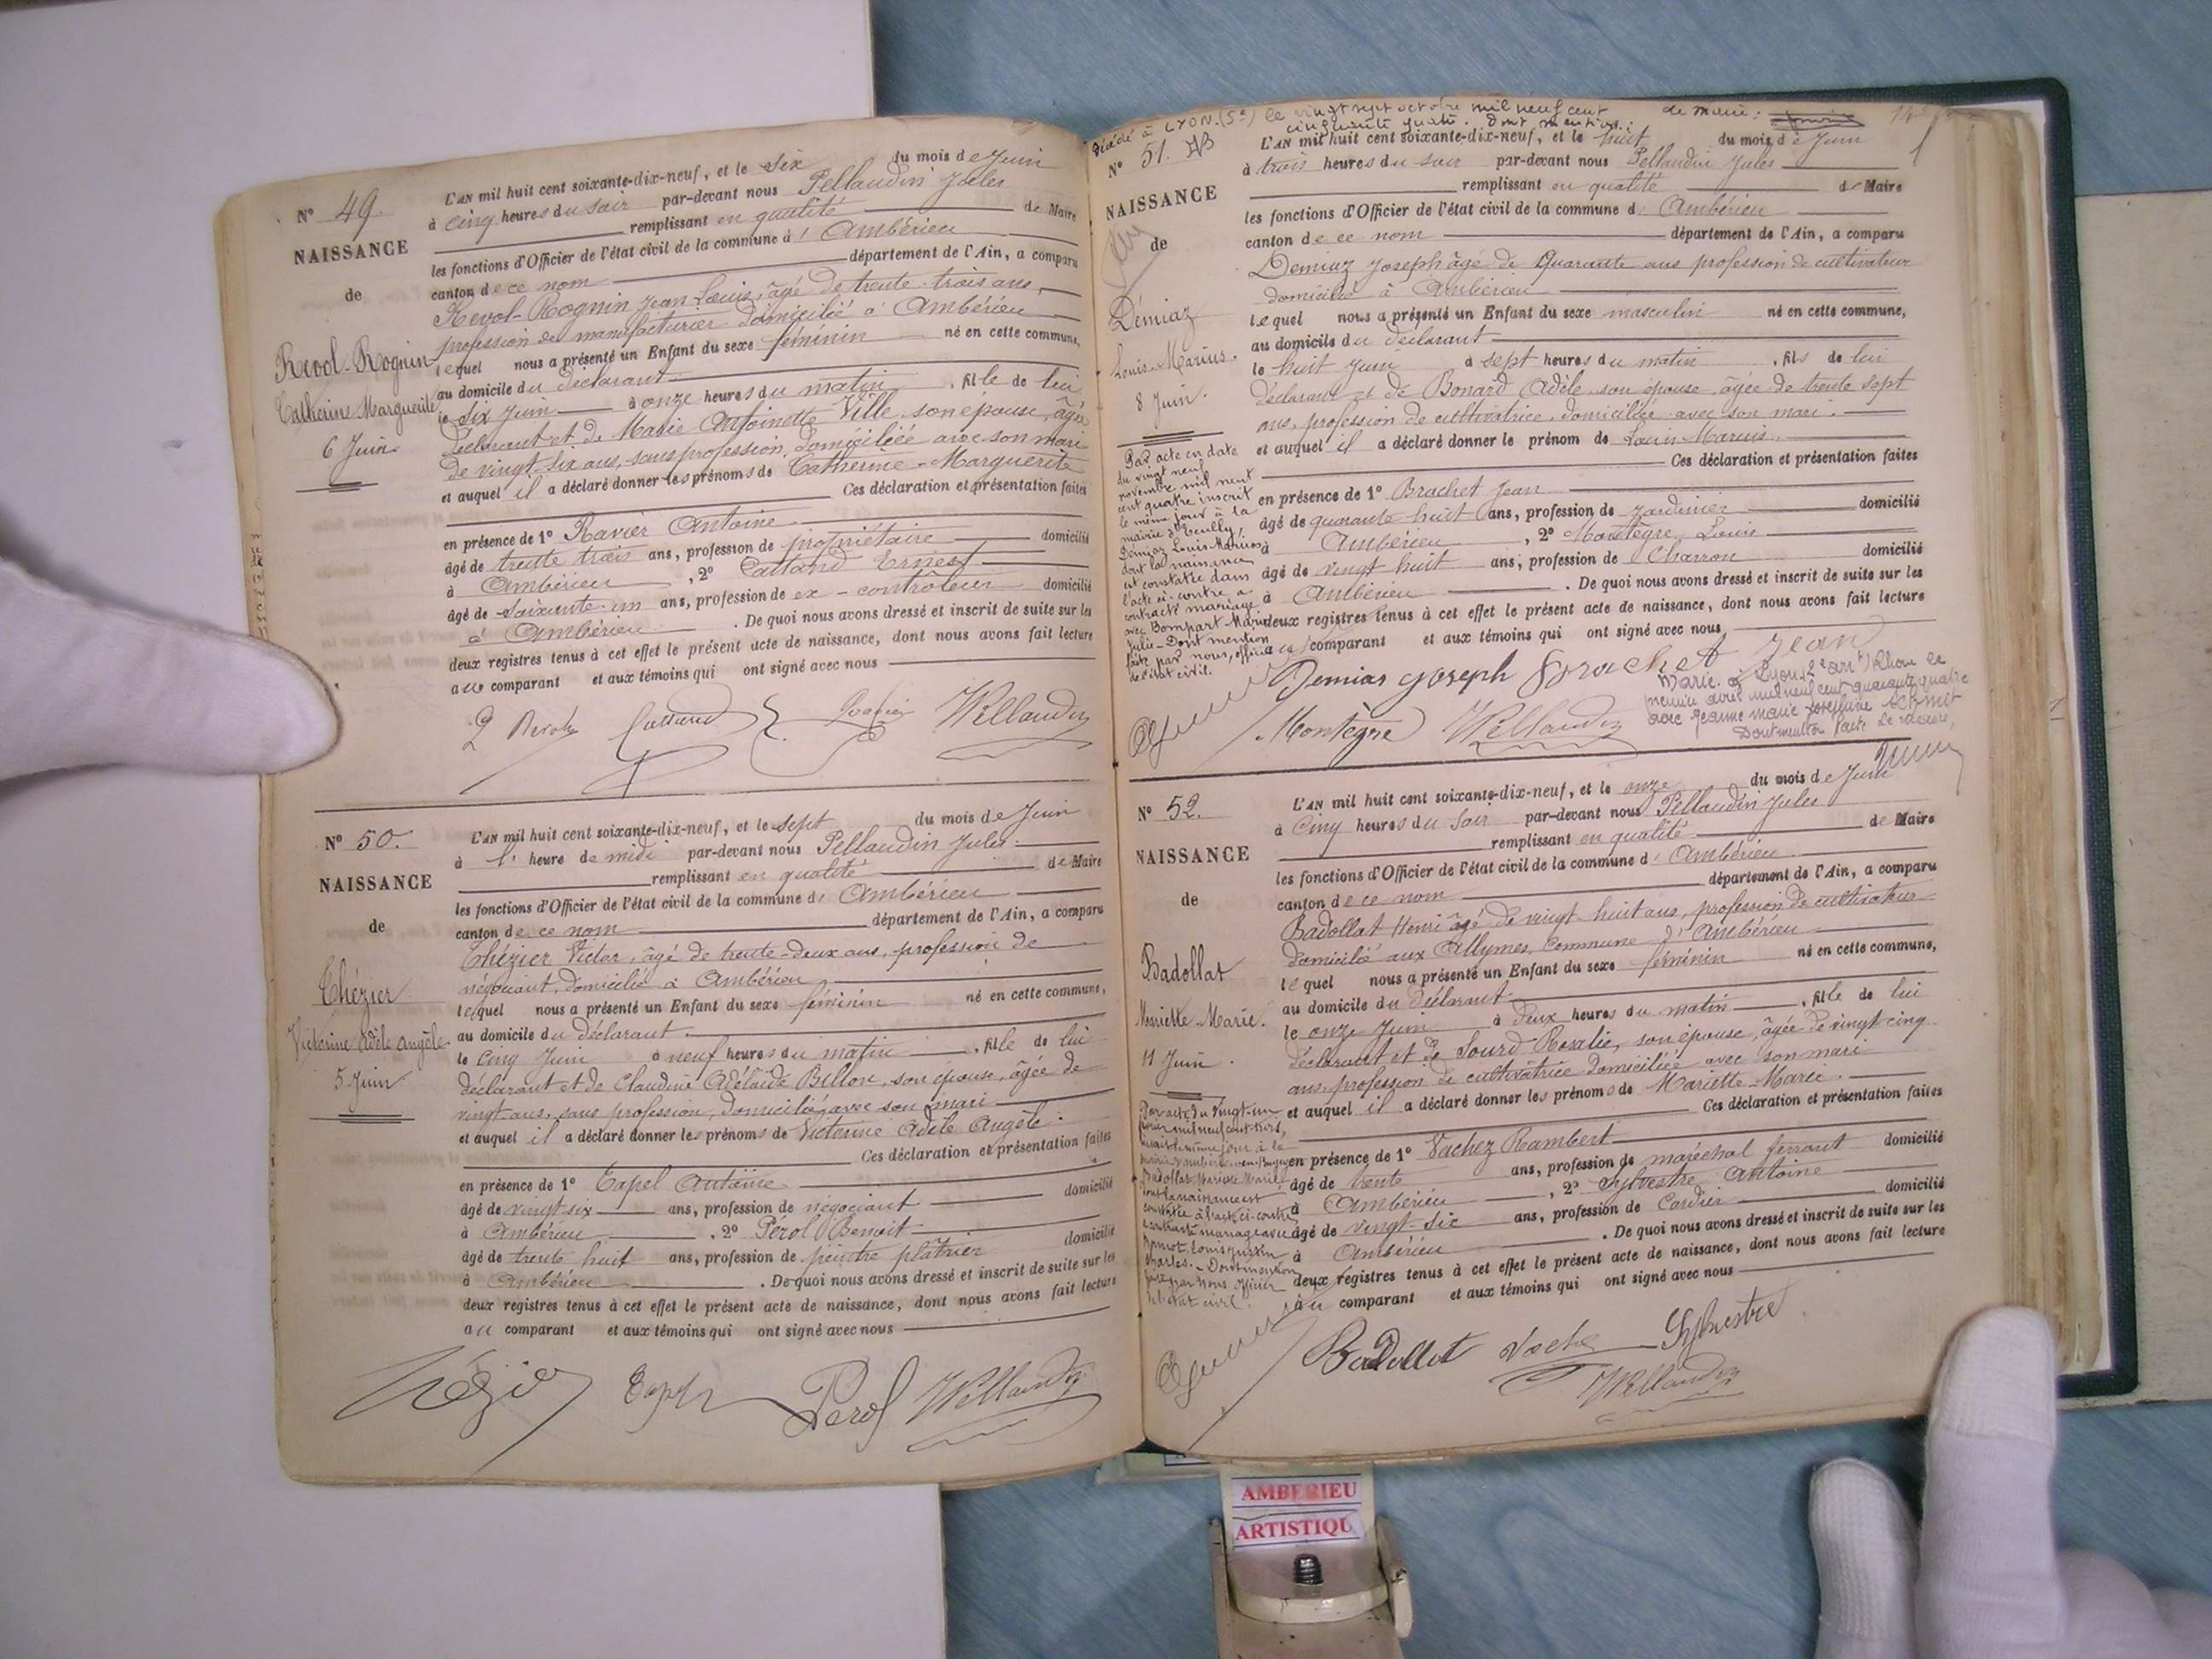 N° 49.
NAISSANCE
de
Revol-Rognin
Catherine Marguerite
6 Juin.
L'AN mil huit cent soixante-dix-neuf, et le six du mois de Juin
à cinq heures du soir par-devant nous Pellaudin Jules
remplissant en qualité de Maire
les fonctions d'Officier de l'état civil de la commune d' Ambérieu
canton de ce nom département de l'Ain, a comparu
Revol-Rognin Jean Louis, âgé de trente-trois ans,
profession de manufacturier domicilié à Ambérieu
lequel nous a présenté un Enfant du sexe féminin né en cette commune,
au domicile du déclarant
le six Juin à onze heures du matin, fille de lui
déclarant et de Marie Antoinette Ville son épouse, âgée
de vingt-six ans, sans profession, domiciliée avec son mari
et auquel il a déclaré donner les prénoms de Catherine-Marguerite
Ces déclaration et présentation faites
en présence de 1° Ravier Antoine
âgé de trente trois ans, profession de propriétaire domicilié
à Ambérieu, 2° Ernest
âgé de soixante-un ans, profession de ex-contrôleur domicilié
à Ambérieu. De quoi nous avons dressé et inscrit de suite sur les
deux registres tenus à cet effet le présent acte de naissance, dont nous avons fait lecture
au comparant et aux témoins qui ont signé avec nous
N° 50.
NAISSANCE
de
Chézier
Victorine Adèle Angèle
5 Juin
L'AN mil huit cent soixante-dix-neuf, et le sept du mois de Juin
à l' heure de midi par-devant nous Pellaudin Jules
remplissant en qualité de Maire
les fonctions d'Officier de l'état civil de la commune d' Ambérieu
canton de ce nom département de l'Ain, a comparu
Chézier Victor, âgé de trente-deux ans, profession de
négociant, domicilié à Ambérieu
lequel nous a présenté un Enfant du sexe féminin né en cette commune,
au domicile du déclarant.
le cinq Juin à neuf heures du matin, fille de lui
déclarant et de Claudine Adélaïde Billon, son épouse, âgée de
vingt ans, sans profession, domiciliée avec son mari
et auquel il a déclaré donner les prénoms de Victorine Adèle Angèle.
Ces déclaration et présentation faites
en présence de 1° Tapel Antoine
âgé de vingt six ans, profession de négociant domicilié
à Ambérieu, 2° Pérol Benoit
âgé de trente huit ans, profession de peintre plâtrier domicilié
à Ambérieu. De quoi nous avons dressé et inscrit de suite sur les
deux registres tenus à cet effet le présent acte de naissance, dont nous avons fait lecture
au comparant et aux témoins qui ont signé avec nous
Pérol
Décédé à LYON (5e) le vingt sept octobre mil neuf cent
cinquante quatre. Dont mention:
N° 51.
NAISSANCE
de
Démiaz
Louis-Marius.
8 Juin.
Par acte en date
du vingt neuf
novembre mil neuf
cent quatre inscrit
le même jour à la
mairie d'Ecully,
Démiaz Louis-Marius
dont la naissance
est constatée dans
l'acte ci-contre a
contracté mariage
avec Bompart Marie
Julie. Dont mention
faite par nous, officier
de l'état civil.
L'AN mil huit cent soixante-dix-neuf, et le huit du mois de Juin
à trois heures du soir par-devant nous Pellaudin Jules
remplissant en qualité de Maire
les fonctions d'Officier de l'état civil de la commune d' Ambérieu
canton de ce nom département de l'Ain, a comparu
Demiaz Joseph âgé de Quarante ans profession de cultivateur
domicilié à Ambérieu
lequel nous a présenté un Enfant du sexe masculin né en cette commune,
au domicile du déclarant
le huit Juin à sept heures du matin, fils de lui
déclarant et de Bonard Adèle son épouse âgée de trente sept
ans, profession de cultivatrice, domiciliée avec son mari.
et auquel il a déclaré donner le prénom de Louis-Marius.
Ces déclaration et présentation faites
en présence de 1° Brachet Jean
âgé de quarante huit ans, profession de Jardinier domicilié
à Ambérieu, 2° Montègre Louis
âgé de vingt huit ans, profession de Charron domicilié
à Ambérieu. De quoi nous avons dressé et inscrit de suite sur les
deux registres tenus à cet effet le présent acte de naissance, dont nous avons fait lecture
au comparant et aux témoins qui ont signé avec nous
Demias Joseph Brachet Jean
Montègre
Marié à Lyon, 2e arrt, Rhône le
avril mil neuf cent quarante quatre
avec Jeanne Marie
Dont mention faite le
N° 52.
NAISSANCE
de
Badollat
Mariette-Marie.
11 Juin.
L'AN mil huit cent soixante-dix-neuf, et le onze du mois de Juin
à Cinq heures du soir par-devant nous Pellaudin Jules
remplissant en qualité de Maire
les fonctions d'Officier de l'état civil de la commune d' Ambérieu
canton de ce nom département de l'Ain, a comparu
Badollat Henri âgé de vingt huit ans, profession de cultivateur
domicilié aux Allymes, Commune d'Ambérieu
lequel nous a présenté un Enfant du sexe féminin né en cette commune,
au domicile du déclarant
le onze Juin à deux heures du matin, fille de lui
déclarant et de Sourd Rosalie, son épouse, âgée de vingt cinq
ans, profession de cultivatrice domiciliée avec son mari
et auquel il a déclaré donner les prénoms de Mariette-Marie.
Ces déclaration et présentation faites
en présence de 1° Vachez Rambert
âgé de trente ans, profession de maréchal ferrant domicilié
à Ambérieu, 2° Sylvestre Antoine
âgé de vingt-six ans, profession de Cordier domicilié
à Ambérieu. De quoi nous avons dressé et inscrit de suite sur les
deux registres tenus à cet effet le présent acte de naissance, dont nous avons fait lecture
au comparant et aux témoins qui ont signé avec nous
Badollat Sylvestre
AMBERIEU
ARTISTIQU